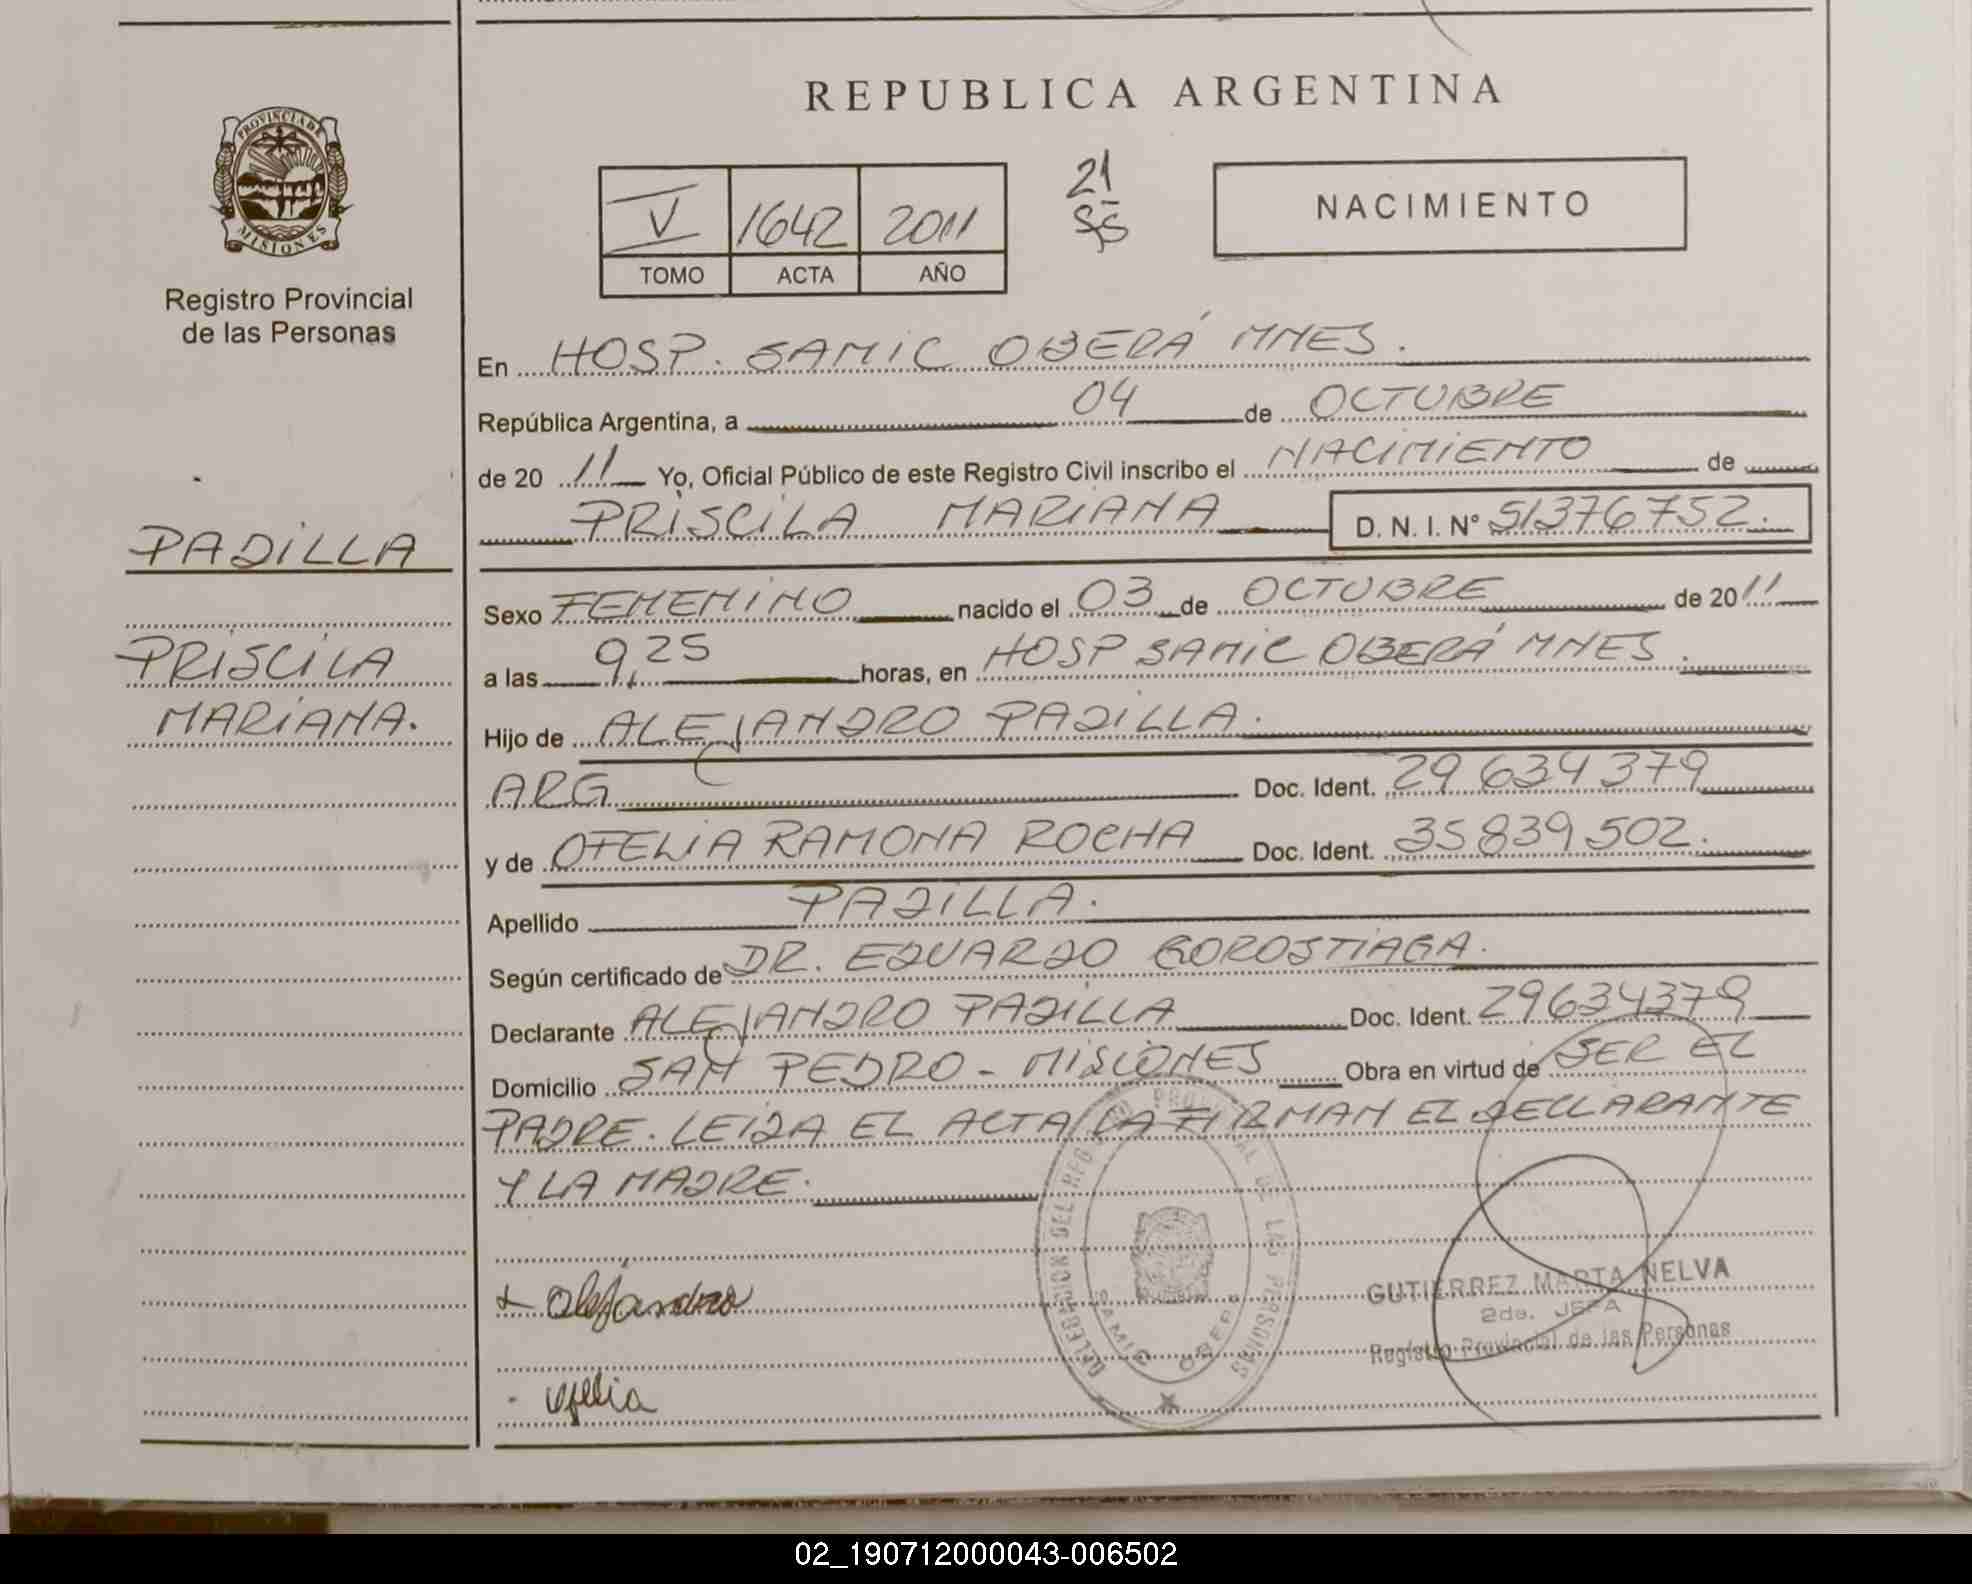 REPUBLICA ARGENTINA
PROVINCIA DE
MISIONES
Registro Provincial
de las Personas
V 1642 2011
TOMO ACTA AÑO
21
NACIMIENTO
PADILLA
PRISCILA
MARIANA.
En HOSP. SAMIC OBERÁ MNES.
República Argentina, a 04 de OCTUBRE
de 20 11 Yo, Oficial Público de este Registro Civil inscribo el NACIMIENTO de
PRISCILA MARIANA D. N. I. N° 51376752.
Sexo FEMENINO nacido el 03 de OCTUBRE de 20 11
a las 9,25 horas, en HOSP SAMIC OBERÁ MNES.
Hijo de ALEJANDRO PADILLA.
ARG Doc. Ident. 29 634 379
y de OFELIA RAMONA ROCHA Doc. Ident. 35 839 502.
Apellido PADILLA.
Según certificado de DR. EDUARDO GOROSTIAGA.
Declarante ALEJANDRO PADILLA Doc. Ident. 29634379
Domicilio SAN PEDRO - MISIONES Obra en virtud de SER EL
PADRE. LEIDA EL ACTA LA FIRMAN EL DECLARANTE
Y LA MADRE.
DELEGACION DEL REGISTRO PROVINCIAL DE LAS PERSONAS
SAMIC OBERA
Alejandro
ofelia
GUTIERREZ MARTA NELVA
2da. JEFA
Registro Provincial de las Personas
02_190712000043-006502